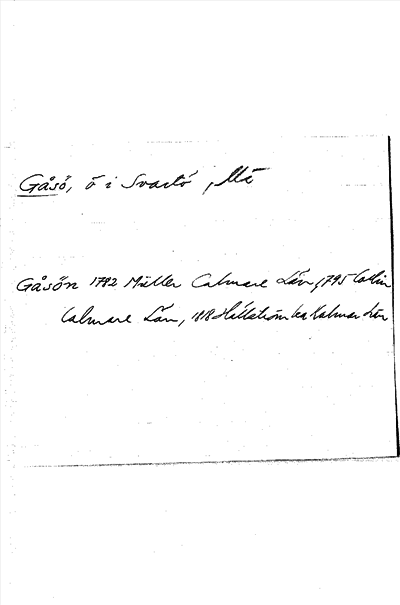 Gåsö, ö i Svartö, Mö
Gåsön 1792 Müller Calmare Län, 1795 Collin
Calmare Län, 1818 Hällström ka Kalmar Län